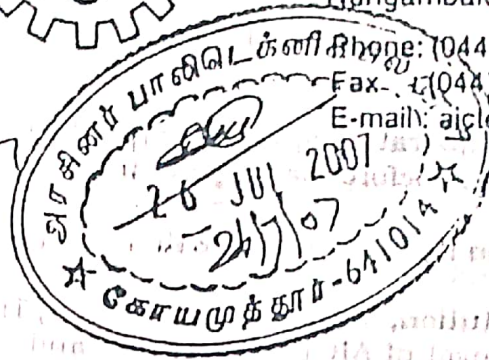 Phone: (044
Fax
(044
E-mail: aicte
அரசினர் பாலிடெக்னிக்
26 JUL 2007
கோயமுத்தூர்-641014